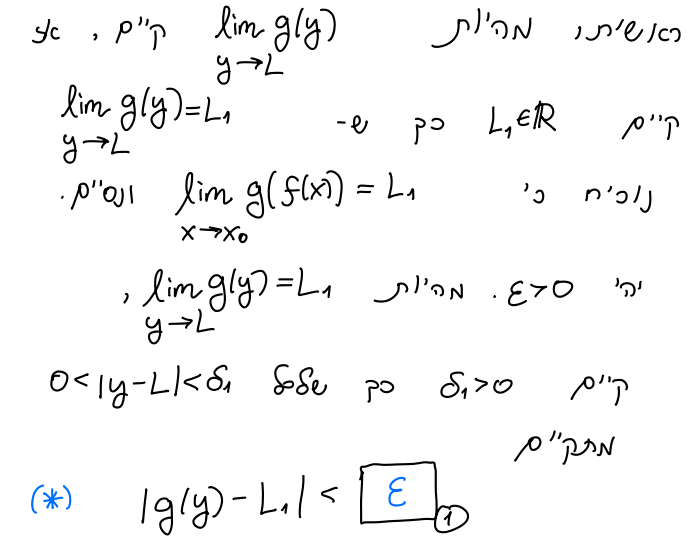 ראשית, מהיות lim g(y) קיים, אז
y→L
קיים L₁∈ℝ כך ש- lim g(y)=L₁
y→L
נוכיח כי lim g(f(x)) = L₁ ונסיים.
x→x₀
יהי ε>0. מהיות lim g(y)=L₁,
y→L
קיים δ₁>0 כך שלכל 0<|y-L|<δ₁
מתקיים
(*) |g(y) - L₁| < ε ①